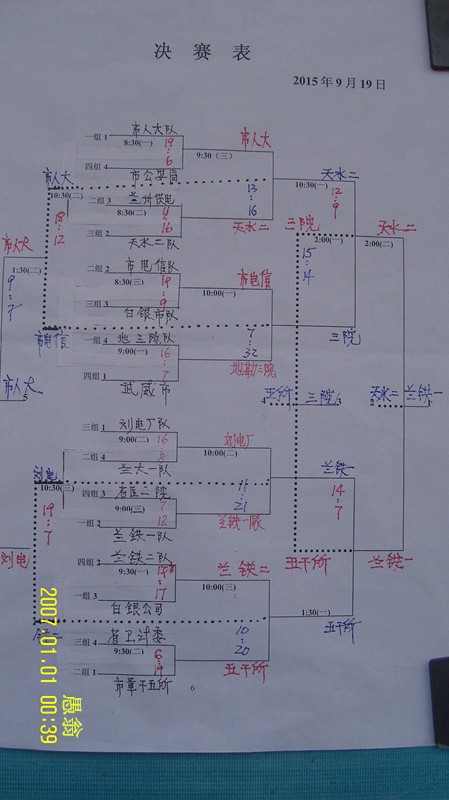 决赛表
2015年9月19日
市人大队
一组1
8:30(一)
19:6
市人大
9:30(三)
四组4
市公安局
市人大
天水二
10:30(二)
二组3
兰州供电
13:16
10:30(一)
12:9
8:30(二)
16
18:12
三组2
天水二队
天水二
三院
2:00(一)
天水二
2:00(二)
市人大
二组2
市电信队
15:4
1:30(二)
8:30(三)
19:9
市电信
10:00(一)
9:7
三组3
白银市队
市电信
一组4
地三院队
7:32
三院
9:00(一)
16:7
四组1
武威市
地勘三院
市人大
5
4
三院
3
天水二
2
兰铁一
1
三组1
刘电厂队
9:00(二)
16
刘电厂
10:00(二)
二组4
兰大一队
刘电
兰铁一
10:30(三)
四组3
21
14:7
9:00(三)
12
19:7
一组2
兰铁一队
兰铁一队
刘电
四组2
兰铁二队
兰铁二
干所
兰铁一
9:30(一)
17
10:00(三)
一组3
白银公司
1:30(一)
三组4
省卫计委
10:20
干所
9:30(二)
6:19
二组1
市军干五所
干所
6
2007.01.01 00:39
愚翁